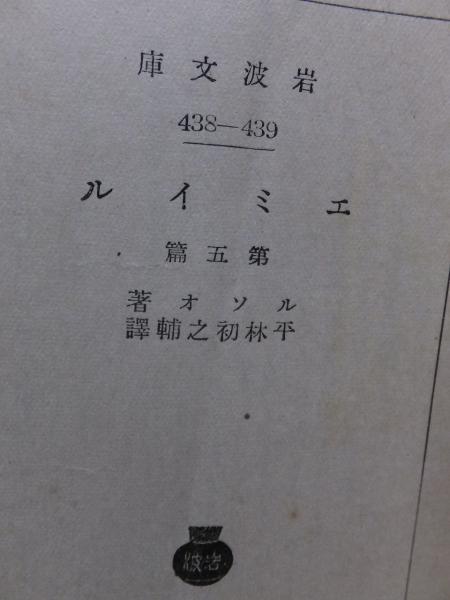 岩波文庫
438—439
エミイル
第五篇
ルソオ著
平林初之輔譯
岩波